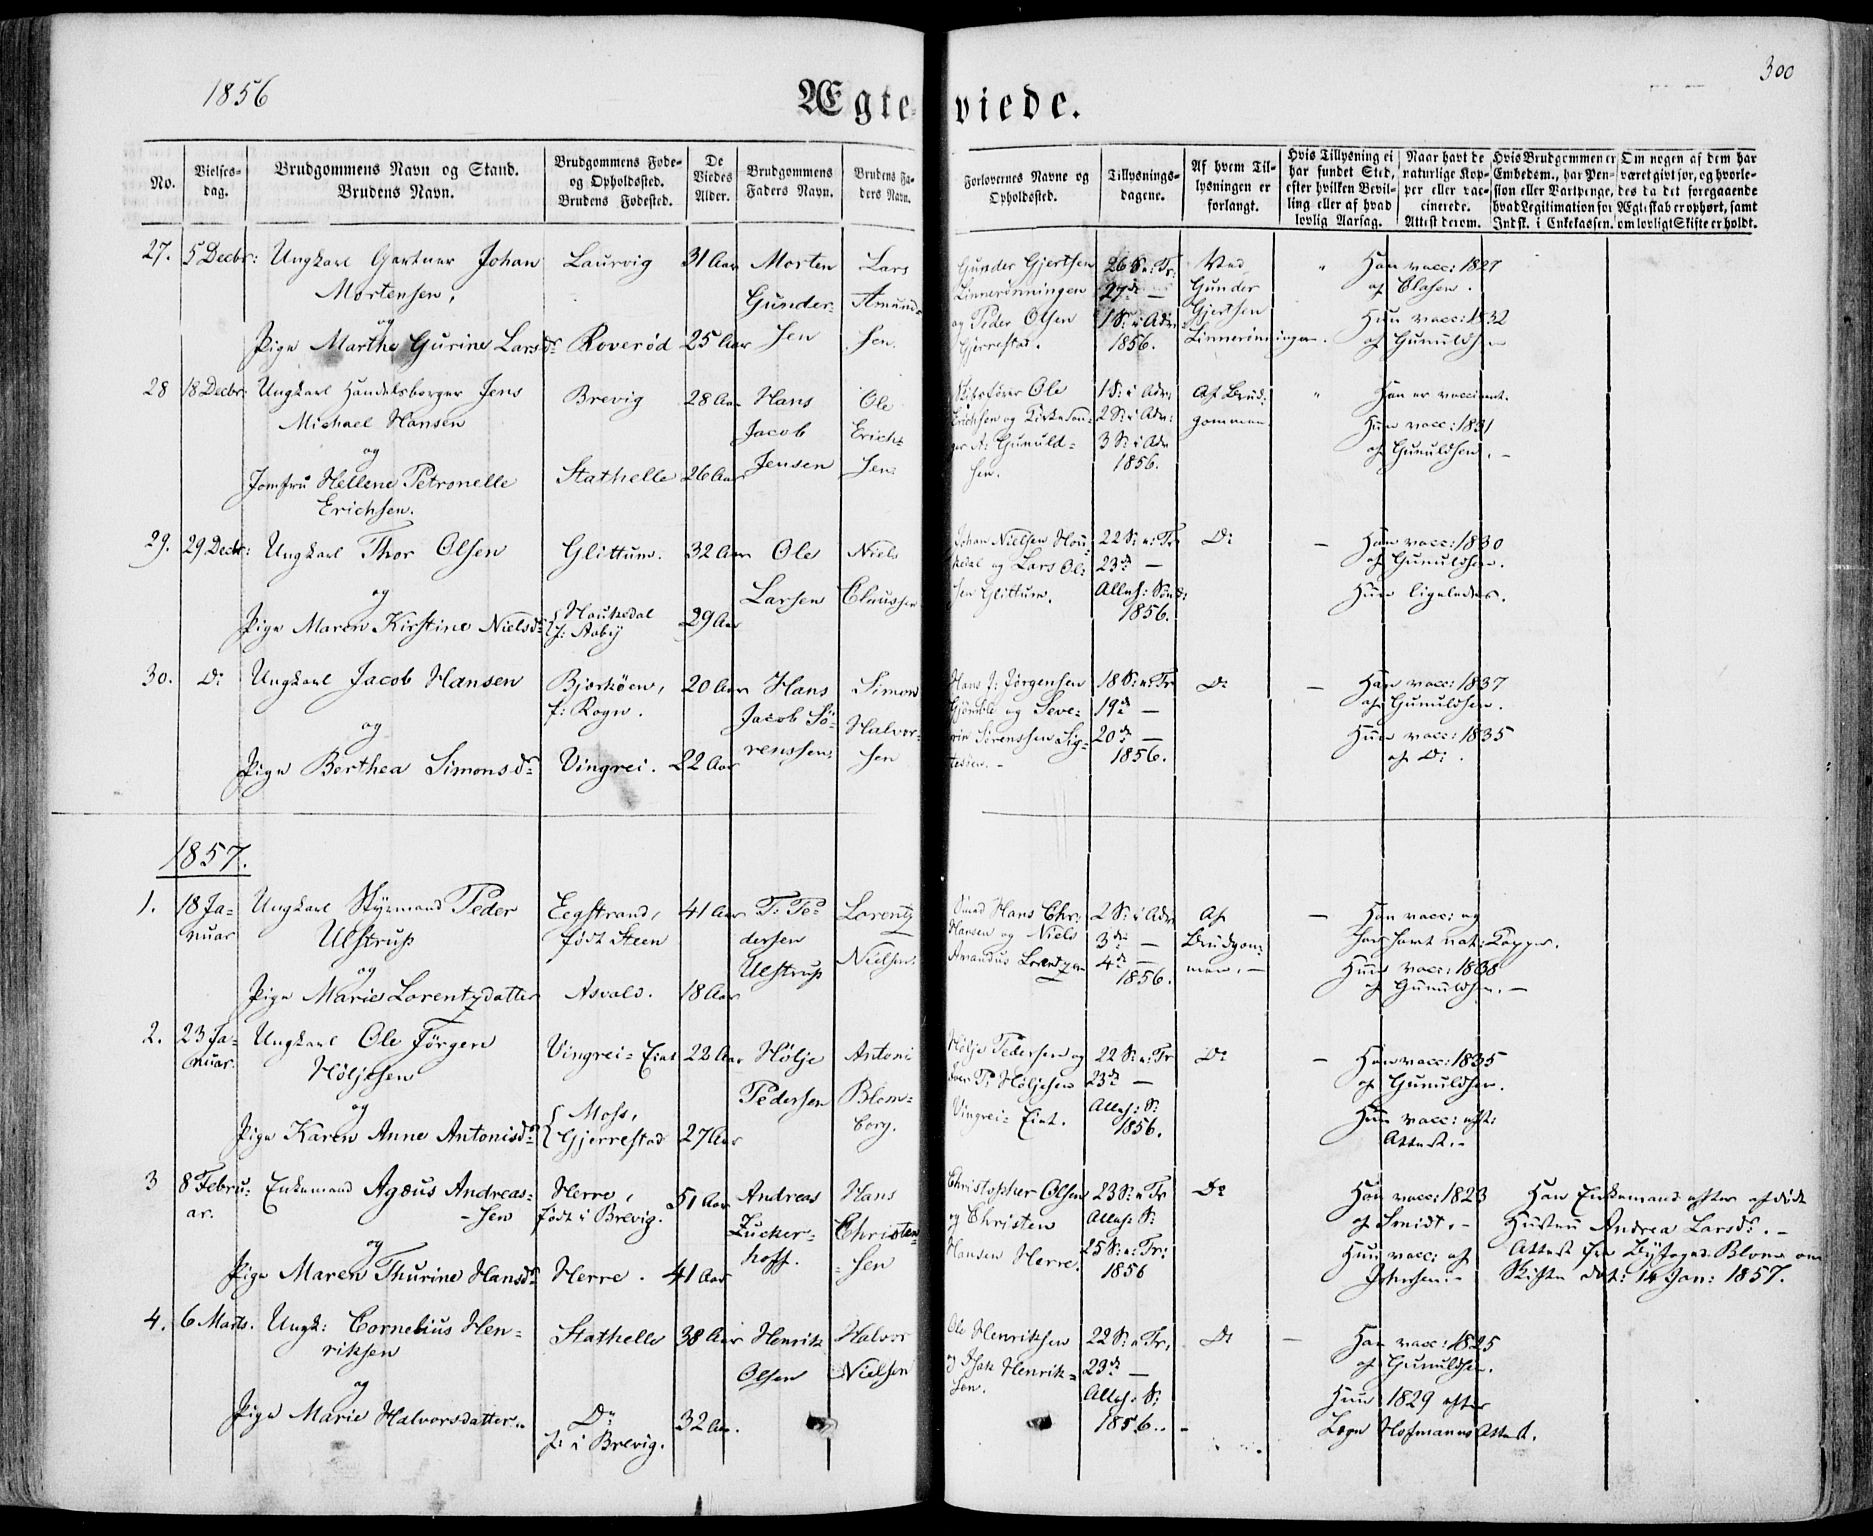 1856
300
Ægteviede.
No.
Vielses-
dag.
Brudgommens Navn og Stand.
Brudens Navn.
Brudgommens Føde-
og Opholdssted.
Brudens Fødested.
De
Viedes
Alder.
Brudgommens
Faders Navn.
Brudens Fa-
ders Navn.
Forlovernes Navne og
Opholdssted.
Tillysnings-
dagene.
Af hvem Til-
lysningen er
forlangt.
Hvis Tillysning ei
har fundet Sted,
efter hvilken Bevil-
ling eller af hvad
lovlig Aarsag.
Naar havt de
naturlige Kop-
per eller vac-
cinerede.
Attest derom.
Hvis Brudgommen er
Embedsm., har Pen-
sion eller Vartpenge,
hvad Legitimation for
Indsk. i Enkekassen.
Om nogen af dem har
været gift før, og hvorle-
des da det foregaaende
Ægteskab er ophørt, samt
om lovligt Skifte er holdt.
27. 5 Decbr: Ungkarl Gartner Johan
Mortensen,
og
Pige Marthe Gurine Larsdr
Laurvig
Roverød
31 Aar
25 Aar
Morten
Gunder-
sen
Lars
Amund-
sen.
Gunder Gjertsen
Linnerønningen
og Peder Olsen
Gjerrestad.
26 S. e: Tr:
27de —
1 S: i Adv:
1856.
Ved
Gunder
Gjertsen
Linnerønningen.
"
Han vacc: 1827
af Clasen.
Hun vacc: 1832
af Gunuldsen
28 18 Decbr: Ungkarl Handelsborger Jens
Michael Hansen
og
Jomfru Hellene Petronelle
Erichsen.
Brevig
Stathelle
28 Aar
26 Aar
Hans
Jacob
Jensen
Ole
Erich-
sen
Skibsfører Ole
Erichsen og Kirkesan-
ger A: Gunuld-
sen.
1 S: i Adv:
2 S: i Adv:
3 S: i Adv
1856.
Af Brud-
gommen
"
Han er vaccineret.
Hun vacc: 1831
af Gunuldsen. —
29. 29 Decbr: Ungkarl Thor Olsen
og
Pige Maren Kirstine Nielsdr
Glittum.
Houkedal
f: Aaby
32 Aar
29 Aar
Ole
Larsen
Niels
Claussen
Johan Nielsen Hou-
kedal og Lars Ol-
sen Glittum.
22 S: e: Tr
23de —
Alleh: Sønd:
1856.
Do
—
Han vacc: 1830
af Gunuldsen.
Hun ligeledes.
30. Do Ungkarl Jacob Hansen
og
Pige Berthea Simonsdr
Bjorkøen,
f: Rogn.
Vingrei.
20 Aar
22 Aar
Hans
Jacob Sö-
renssen
Simon
Halvor-
sen
Hans J: Jørgensen
Gjømle og Seve-
rin Sørenssen Sig-
18 S: e: Tr
19de —
20de —
1856.
Do
—
Han vacc: 1837
af Gunuldsen.
Hun vacc: 1835
af Do.
1857.
1. 18 Ja-
nuar
Ungkarl Styrmand Peder
Ulstrup
og
Pige Marie Lorentzdatter
Eegstrand,
født Steen
Asvald.
41 Aar
18 Aar
T: Pe-
dersen
Ulstrup
Lorentz
Nielsen
Smed Hans Chr:
Hansen og Niels
Amandus Lorentzen
2 S: i Adv
3de —
4de —
1856.
Af
Brudgom-
men. —
—
Han vacc: og
har havt nat: Kopper.
Hun vacc: 1838
af Gunuldsen. —
2. 23 Ja-
nuar.
Ungkarl Ole Jörgen
Höljesen
og
Pige Karen Anne Antonisdr
Vingrei- Eiet
Moss,
Gjerrestad
22 Aar
27 Aar
Hölje
Pedersen
Antoni
Blom-
berg.
Hölje Pedersen og
Iver P: Höljesen
Vingrei- Eiet.
22 S: e: Tr
23de —
Alleh: S:
1856.
Do
—
Han vacc: 1835
af Gunuldsen.
Hun vacc: eft:
Attest. —
3 8 Febru-
ar.
Enkemand Agæus Andreas-
-sen
og
Pige Maren Thurine Hansdr
Herre,
født i Brevig.
Herre.
51 Aar
41 Aar
Andreas
Zucker-
hoff.
Hans
Christen-
-sen
Christopher Olsen
og Christen
Hansen Herre.
23 S: e Tr
Alleh: S:
25 S: e: Tr:
1856
Do
Han vacc: 1823
af Smidt. —
Hun vacc: af
Johnsen. —
Han Enkemand efter afdøde
Hustru Andrea Larsdr. —
Attest fra Byfoged Blom om
Skifte dat: 14 Jan: 1857.
4. 6 Marts. Ungk: Cornelius Hen-
riksen
og
Pige Marie Halvorsdatter.
Stathelle
Do
f: i Brevig.
38 Aar
32 Aar.
Henrik
Olsen
Halvor
Nielsen
Ole Henriksen
og Isak Henrik-
sen.
22 S: e Tr:
23de —
Alleh: S:
1856. -
Do
—
Han vacc: 1825
af Gunuldsen.
Hun 1829 efter
Læge Hofmanns Attest.